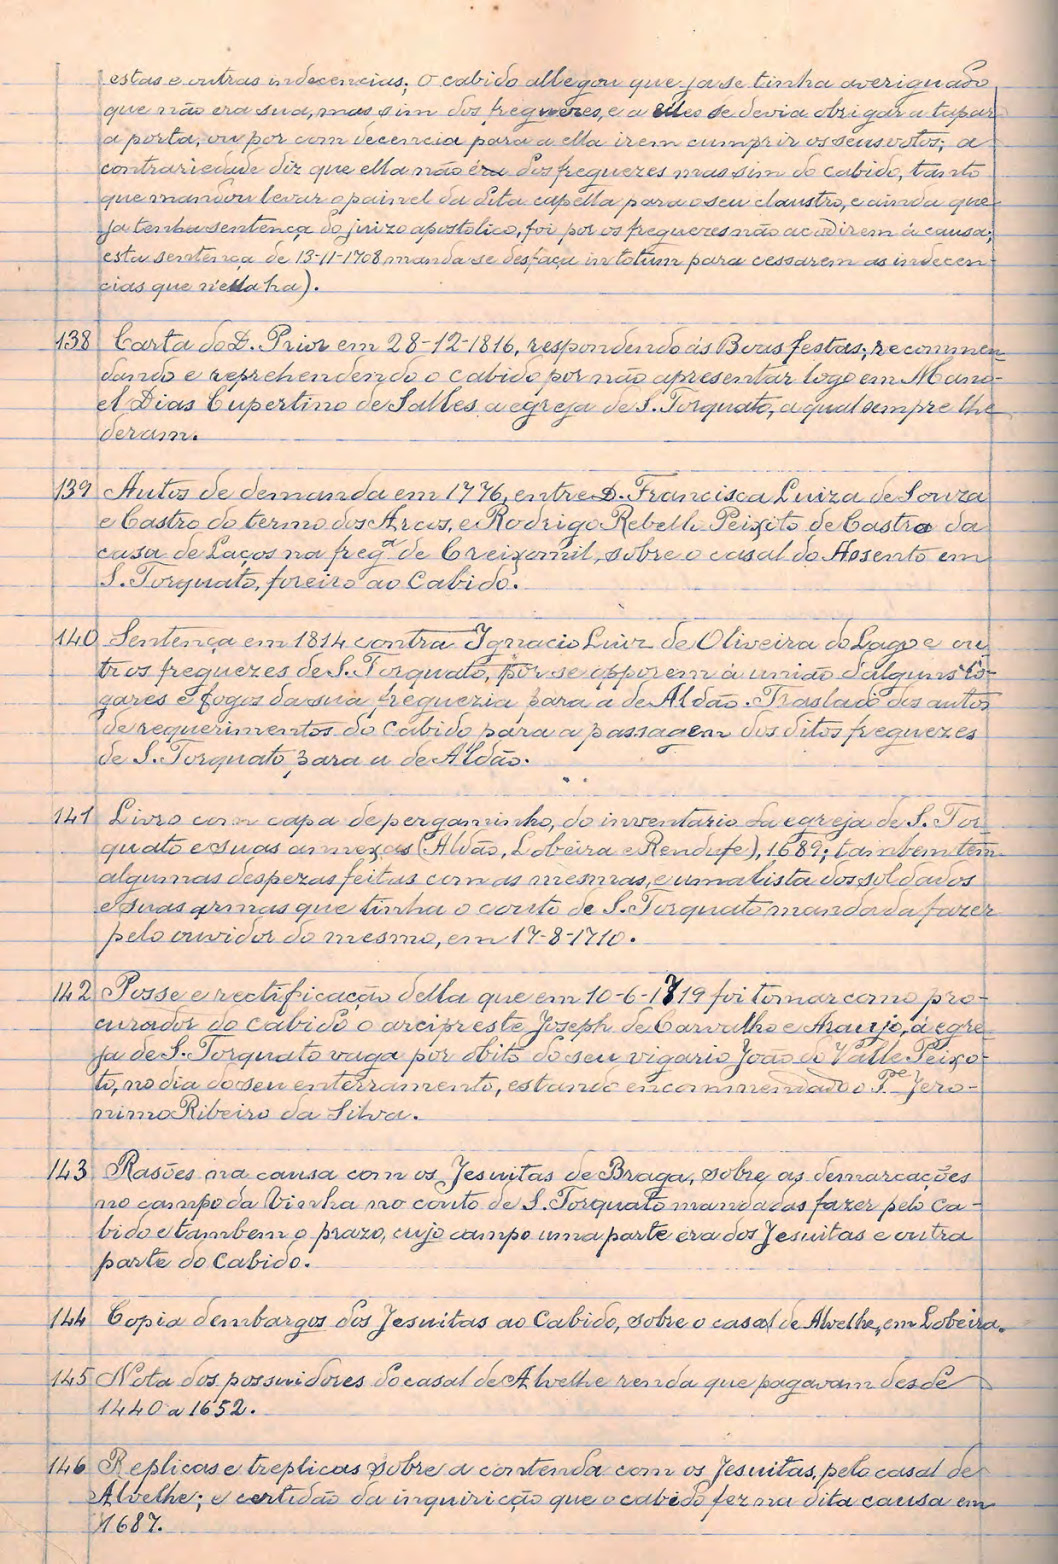 estas e outras indecencias; o cabido allegou que ja se tinha averiguado
que não era sua, mas sim dos freguezes, e a elles se devia obrigar a tapar
a porta, ou por com decencia para a ella irem cumprir os seus votos; a
contrariedade diz que ella não éra dos freguezes mas sim do cabido, tanto
que mandou levar o painel da dita capella para o seu claustro, e ainda que
ja tenha sentença do juizo apostolico, foi por os freguezes não acodirem á causa;
esta sentença de 13-11-1708 manda se desfaça in totum para cessarem as indecen-
cias que n'ella ha).
138 Carta do D. Prior em 28-12-1816, respondendo ás Boas festas; recommen-
dando e reprehendendo o cabido por não apresentar logo em Mano-
el Dias Cupertino de Salles a egreja de S. Torquato, a qual sempre lhe
deram.
139 Autos de demanda em 1776, entre D. Francisca Luiza de Souza
e Castro do termo dos Arcos, e Rodrigo Rebello Peixoto de Castro da
casa de Laços na freg.ª de Creixomil, sobre o casal do Assento em
S. Torquato, foreiro ao Cabido.
140 Sentença em 1814 contra Ignacio Luiz de Oliveira do Lago e ou-
tros freguezes de S. Torquato, por se opporem á união d'alguns lo-
gares e fogos da sua freguezia para a de Aldão. Traslado dos autos
de requerimentos do Cabido para a passagem dos ditos freguezes
de S. Torquato para a de Aldão.
141 Livro com capa de pergaminho, do inventario da egreja de S. Tor-
quato e suas annexas (Aldão, Lobeira e Rendufe), 1689; tambem tem
algumas despezas feitas com as mesmas, e uma lista dos soldados
e suas armas que tinha o couto de S. Torquato mandada fazer
pelo ouvidor do mesmo, em 17-8-1710.
142 Posse e rectificação della que em 10-6-1719 foi tomar como pro-
curador do cabido o arcipreste Joseph de Carvalho e Araujo, á egre-
ja de S. Torquato vaga por obito do seu vigario João do Valle Peixo-
to, no dia do seu enterramento, estando encommendado o P.e Jero-
nimo Ribeiro da Silva.
143 Rasões na causa com os Jesuitas de Braga, sobre as demarcações
no campo da Vinha no couto de S. Torquato mandadas fazer pelo Ca-
bido e tambem o prazo, cujo campo uma parte era dos Jesuitas e outra
parte do Cabido.
144 Copia dembargos dos Jesuitas ao Cabido, sobre o casal de Alvelhe, em Lobeira.
145 Nota dos possuidores do casal de Alvelhe renda que pagavam desde
1440 a 1652.
146 Replicas e treplicas sobre a contenda com os Jesuitas, pelo casal de
Alvelhe; e certidão da inquirição que o cabido fez na dita causa em
1687.